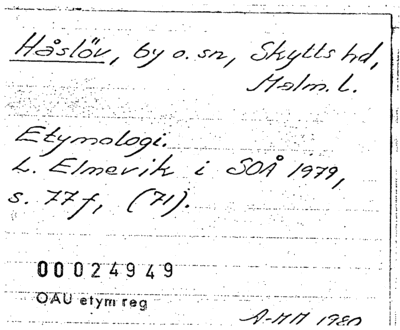 Håslöv, by o. sn, Skytts hd,
Malm. l.
Etymologi.
L. Elmevik i SOÅ 1979,
s. 77f, (71).
00024949
OAU etym reg
A-MM 1980